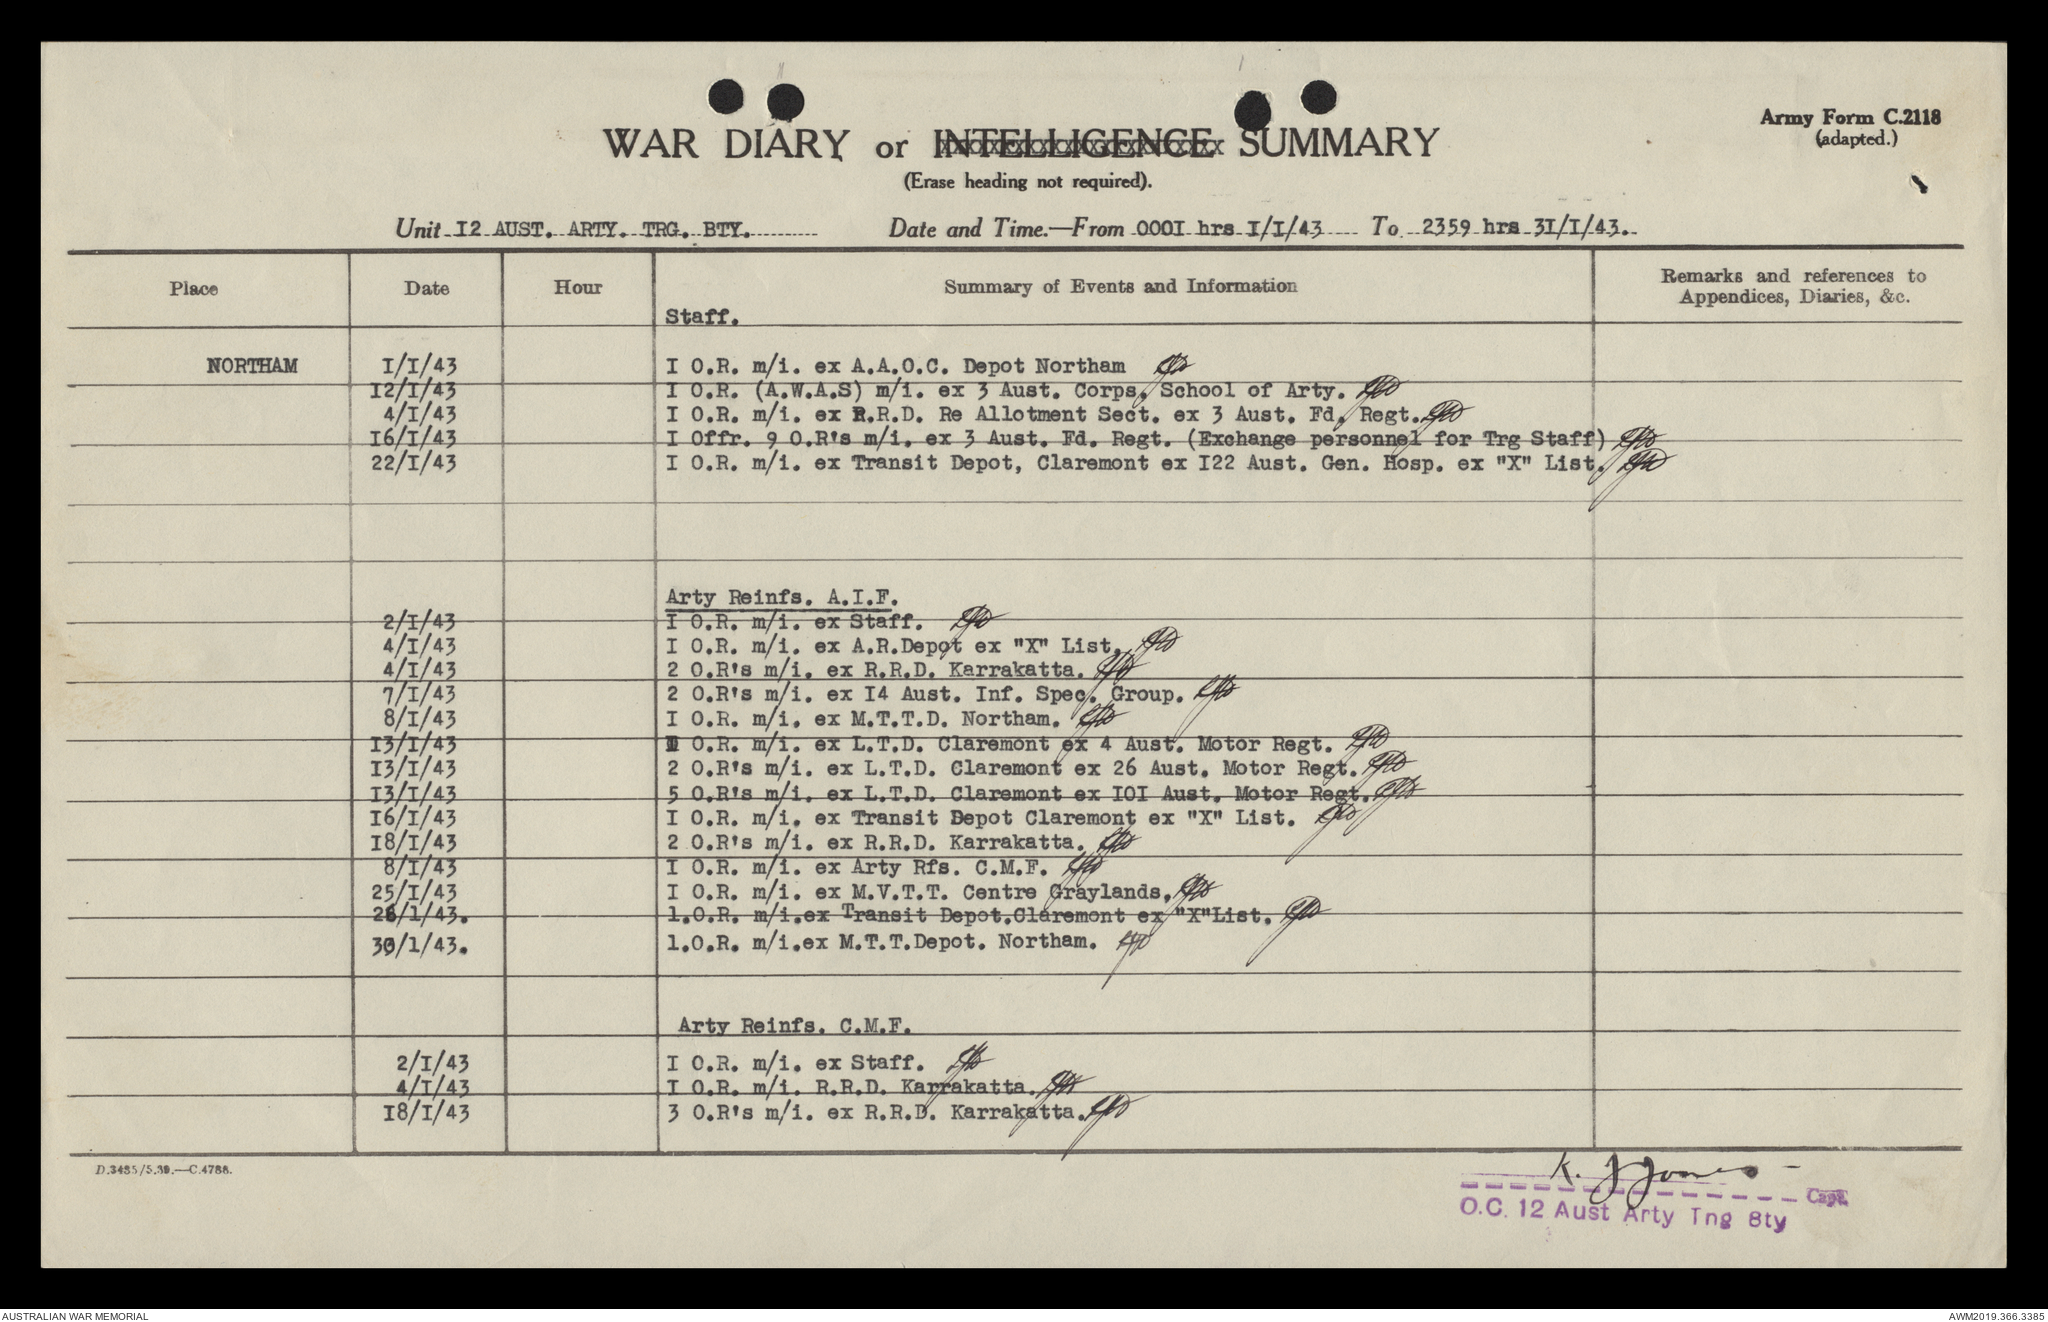 Army Form C.2118
(adapted.)
WAR DIARY or INTELLIGENCE SUMMARY
(Erase heading not required).
Unit I2 AUST. ARTY. TRG. BTY. Date and Time.—From 000I hrs I/I/43 To 2359 hrs 3I/I/43.
Place Date Hour Summary of Events and Information Remarks and references to Appendices, Diaries, &c.
Staff.
NORTHAM I/I/43 I O.R. m/i. ex A.A.O.C. Depot Northam
I2/I/43 I O.R. (A.W.A.S) m/i. ex 3 Aust. Corps. School of Arty.
4/I/43 I O.R. m/i. ex R.R.D. Re Allotment Sect. ex 3 Aust. Fd. Regt.
I6/I/43 I Offr. 9 O.R's m/i. ex 3 Aust. Fd. Regt. (Exchange personnel for Trg Staff)
22/I/43 I O.R. m/i. ex Transit Depot, Claremont ex I22 Aust. Gen. Hosp. ex "X" List.
Arty Reinfs. A.I.F.
2/I/43 I O.R. m/i. ex Staff.
4/I/43 I O.R. m/i. ex A.R.Depot ex "X" List.
4/I/43 2 O.R's m/i. ex R.R.D. Karrakatta.
7/I/43 2 O.R's m/i. ex I4 Aust. Inf. Spec. Group.
8/I/43 I O.R. m/i. ex M.T.T.D. Northam.
I3/I/43 1 O.R. m/i. ex L.T.D. Claremont ex 4 Aust. Motor Regt.
I3/I/43 2 O.R's m/i. ex L.T.D. Claremont ex 26 Aust. Motor Regt.
I3/I/43 5 O.R's m/i. ex L.T.D. Claremont ex IOI Aust. Motor Regt.
I6/I/43 I O.R. m/i. ex Transit Depot Claremont ex "X" List.
I8/I/43 2 O.R's m/i. ex R.R.D. Karrakatta.
8/I/43 I O.R. m/i. ex Arty Rfs. C.M.F.
25/I/43 I O.R. m/i. ex M.V.T.T. Centre Graylands.
26/1/43. 1.O.R. m/i.ex Transit Depot.Claremont ex "X"List.
30/1/43. 1.O.R. m/i.ex M.T.T.Depot. Northam.
Arty Reinfs. C.M.F.
2/I/43 I O.R. m/i. ex Staff.
4/I/43 I O.R. m/i. R.R.D. Karrakatta.
I8/I/43 3 O.R's m/i. ex R.R.D. Karrakatta.
D.3485/5.39.—C.4788.
K. J Jones
Capt.
O.C. 12 Aust Arty Tng Bty
AUSTRALIAN WAR MEMORIAL AWM2019.366.3385